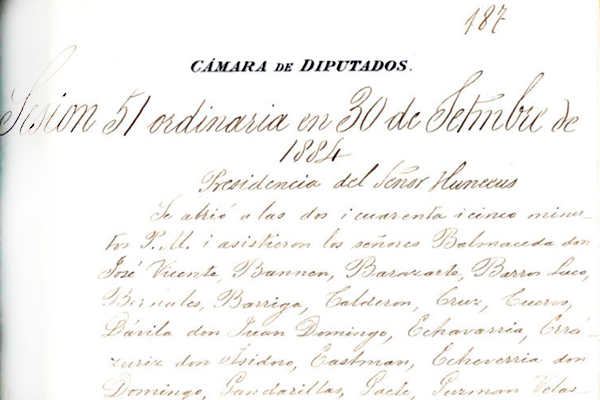 187
CÁMARA DE DIPUTADOS.
Sesion 51 ordinaria en 30 de Setmbre de
1884
Presidencia del Señor Huneeus
Se abrió a las dos i cuarenta i cinco minu-
tos P.M. i asistieron los señores Balmaceda don
José Vicente, Bannen, Barazarte, Barros Luco,
Bernales, Barriga, Calderon, Cruz, Cuervo,
Dávila don Juan Domingo, Echavarria, Errá-
zuriz don Isidoro, Eastman, Echeverria don
Domingo, Gandarillas, Gaete, Guzman Velas-